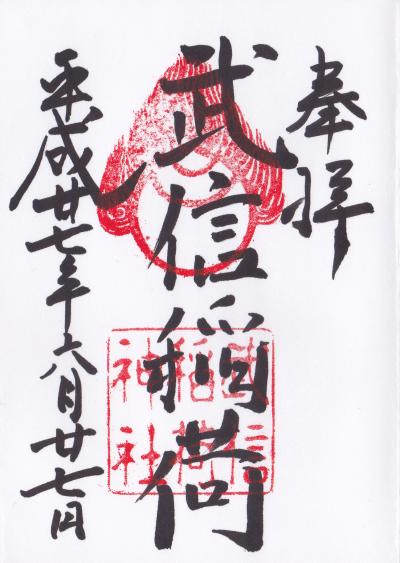 奉拝
武信稲荷
武信
稲荷
神社
平成廿七年六月廿七日